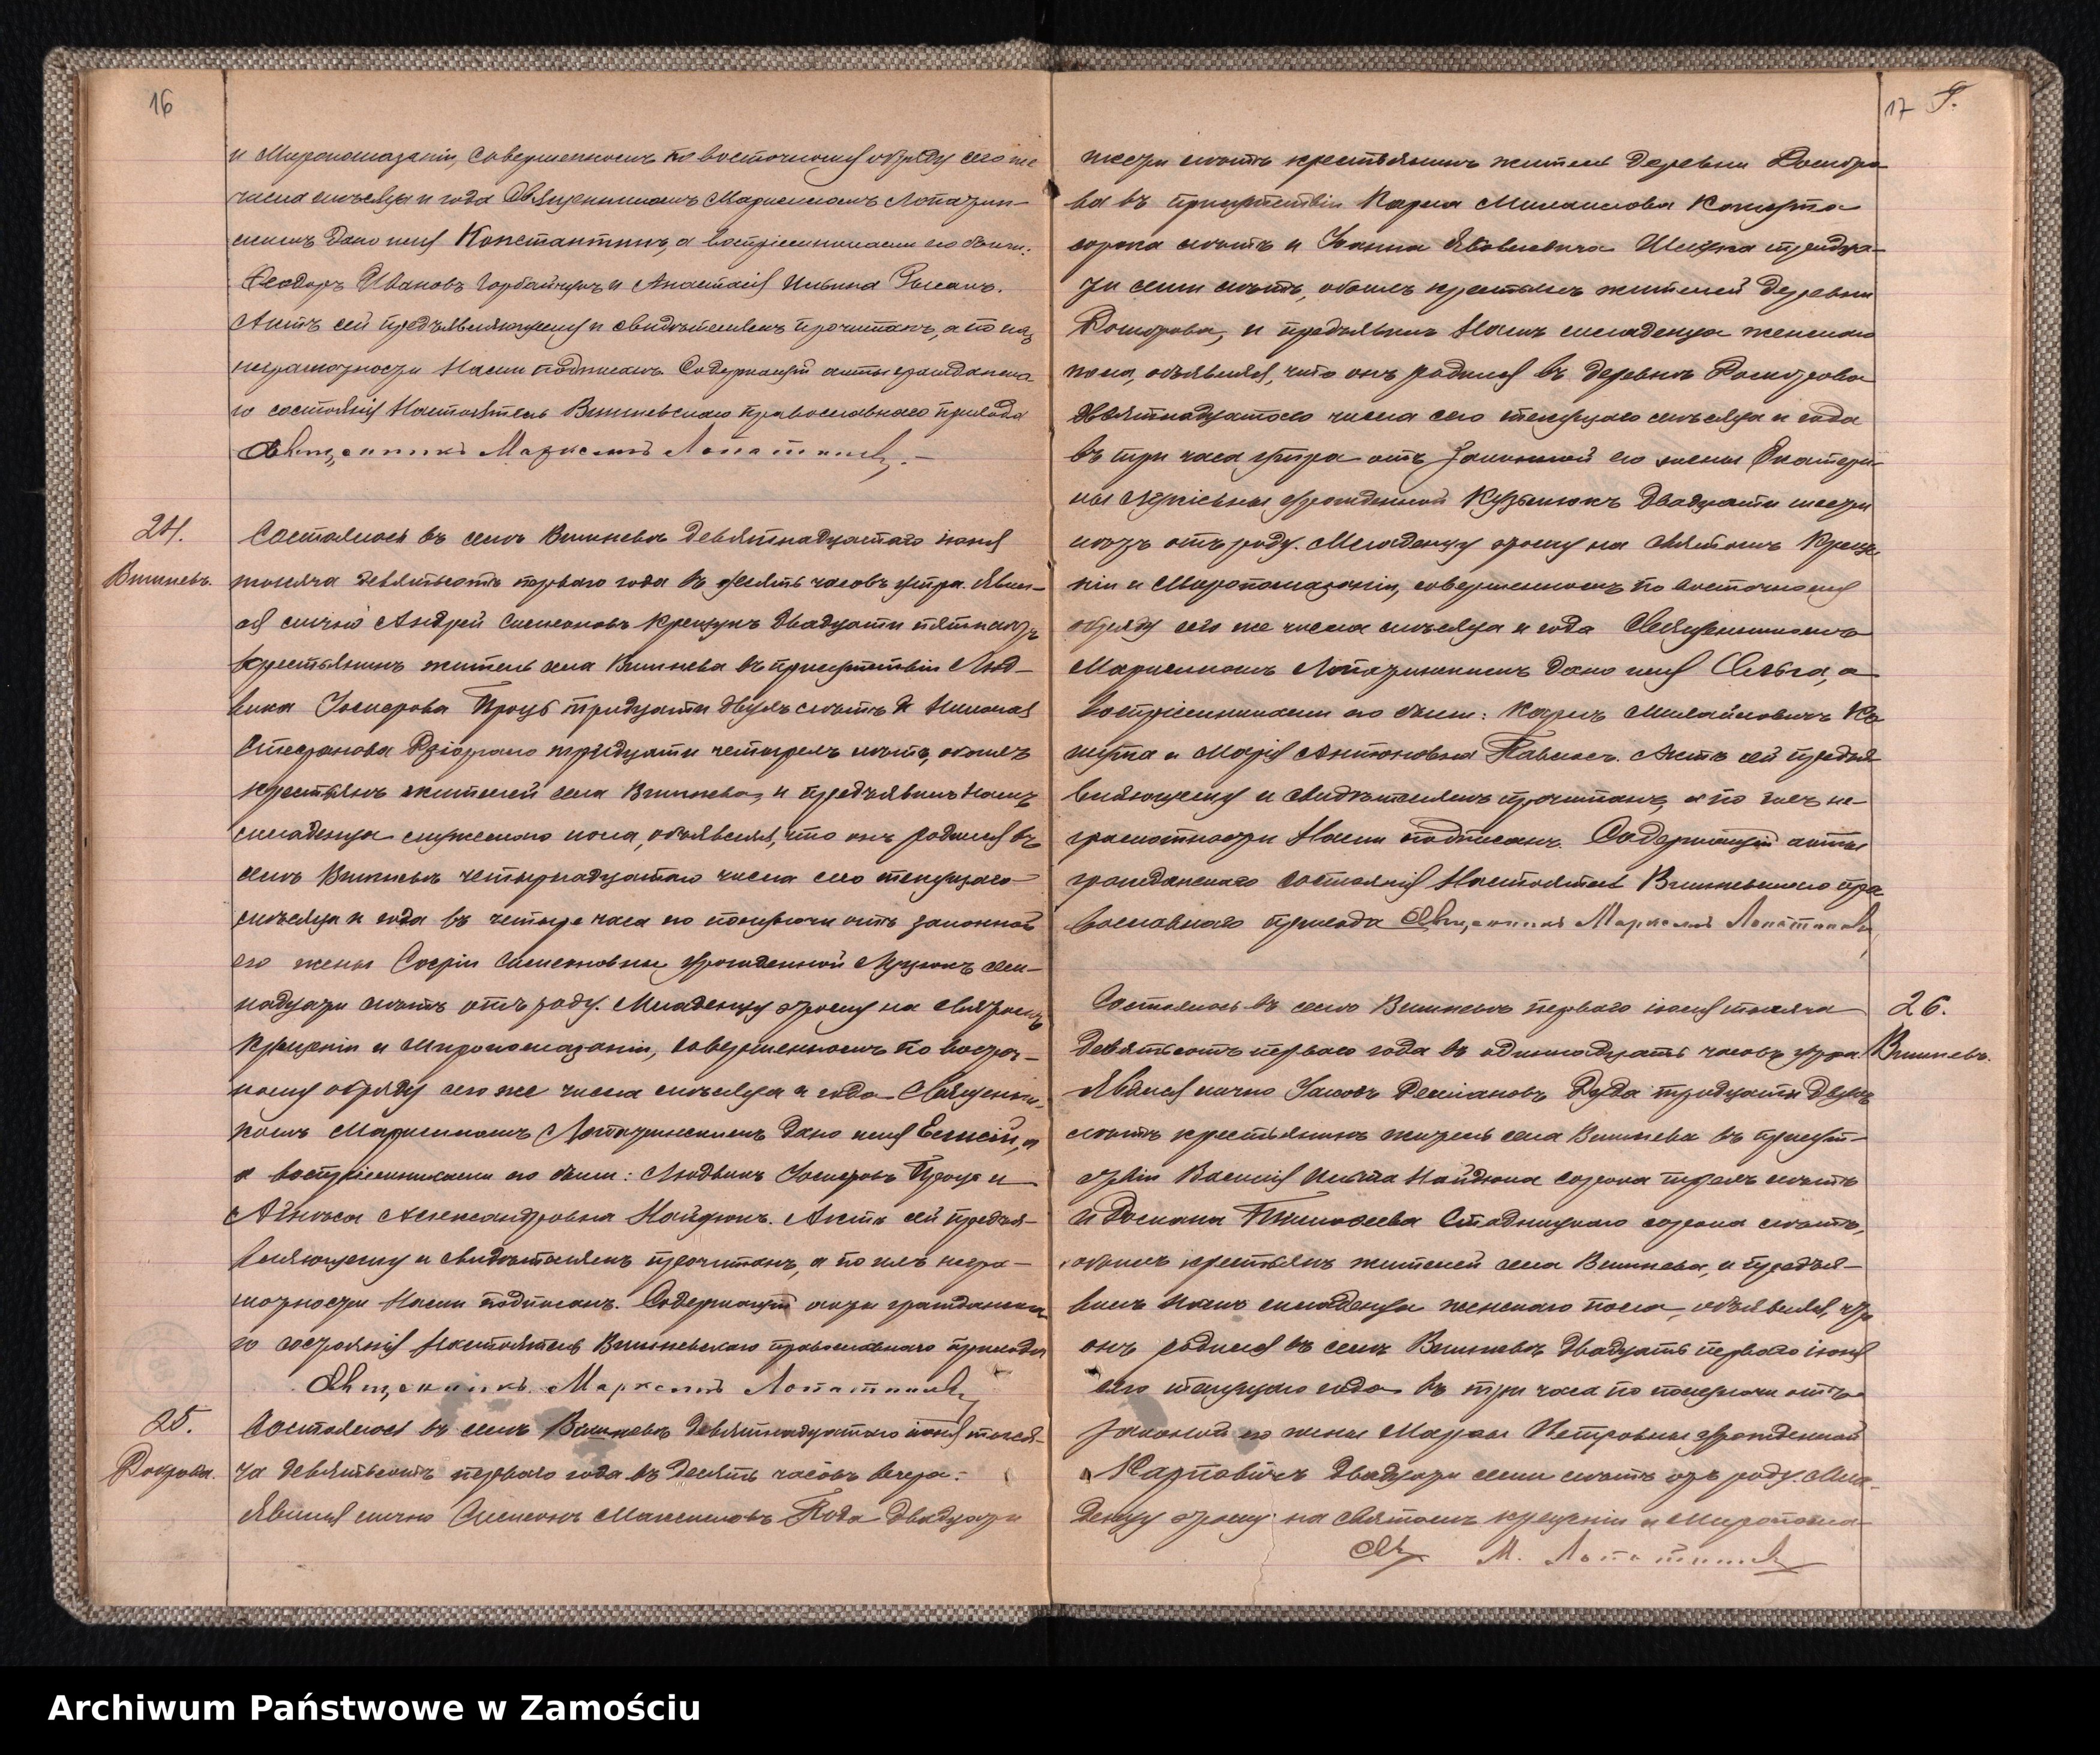 16
и Миропомазаніи, совершенномъ по восточному обряду сего же
числа мѣсяца и года Священникомъ Маркелломъ Лопатин-
скимъ дано имя Константинъ, а воспріемниками его были:
Ѳеодоръ Ивановъ Горбайчукъ и Анастасія Ильина
Актъ сей предъявляющему и свидѣтелямъ прочитанъ, а по их
неграмотности Нами подписанъ. Содержащій акты гражданска
го состоянія Настоятель Вишневскаго православнаго прихода
Священникъ Маркеллъ Лопатинскій.
24.
Вишневъ.
Состоялось въ селѣ Вишневѣ девятнадцатаго іюня
тысяча девятьсотъ перваго года въ десять часовъ утра. Явил-
ся лично Андрей Симеоновъ двадцати пяти лѣтъ
крестьянинъ житель села Вишнева въ присутствіи Люд-
вика Іосифова Процъ тридцати двухъ лѣтъ и Николая
Стефанова тридцати четырехъ лѣтъ, обоихъ
крестьянъ жителей села Вишнева, и предъявилъ Намъ
младенца мужескаго пола, объявляя, что онъ родился въ
селѣ Вишневѣ четырнадцатаго числа сего текущаго
мѣсяца и года въ четыре часа по полуночи отъ законной
его жены Софіи Симеоновны урожденной сем-
надцати лѣтъ отъ роду. Младенцу этому на Святомъ
Крещеніи и Миропомазаніи, совершенномъ по восточ-
ному обряду сего же числа мѣсяца и года Священни-
комъ Маркелломъ Лопатинскимъ дано имя Елисей, а
а воспріемниками его были: Людвикъ Іосифовъ Процъ и
Александровна Найдюкъ. Актъ сей предъя-
вляющему и свидѣтелямъ прочитанъ, а по ихъ негра-
мотности Нами подписанъ. Содержащій акты гражданска
го состоянія Настоятель Вишневскаго православнаго прихода
Священникъ Маркеллъ Лопатинскій
25.
Состоялось въ селѣ Вишневѣ девятнадцатаго іюня тыся-
ча девятьсотъ перваго года въ десять часовъ вечера.
Явился лично Симеонъ Максимовъ двадцати
17
шести лѣтъ крестьянинъ житель деревни
ва въ присутствіи Карпа Михаилова
сорока лѣтъ и Іоанна тридца-
ти семи лѣтъ, обоихъ крестьянъ жителей деревни
и предъявилъ Намъ младенца женскаго
пола, объявляя, что онъ родился въ деревнѣ
девятнадцатаго числа сего текущаго мѣсяца и года
въ три часа утра отъ Законной его жены Екатери-
ны урожденной Кузьмюкъ двадцати шести
лѣтъ отъ роду. Младенцу этому на Святомъ Креще
ніи и Миропомазаніи, совершенномъ по восточному
обряду сего же числа мѣсяца и года Священникомъ
Маркелломъ Лопатинскимъ дано имя Ольга, а
воспріемниками его были: Карпъ Михайловичъ
и Марія Антоновна Актъ сей предъя
вляющему и свидѣтелямъ прочитанъ, а по ихъ не-
грамотности Нами подписанъ. Содержащій акты
гражданскаго состоянія Настоятель Вишневскаго пра
вославнаго прихода Священникъ Маркеллъ Лопатинскій
26.
Вишневъ.
Состоялось въ селѣ Вишневѣ перваго тысяча
девятьсотъ перваго года въ одиннадцать часовъ утра.
Явился лично Іаковъ Даміановъ Дуда тридцати двухъ
лѣтъ крестьянинъ житель села Вишнева въ присут-
ствіи Василія Ильина Найдюка сорока трехъ лѣтъ
и Романа Тимоѳеева Стадницкаго сорока лѣтъ,
обоихъ крестьянъ жителей села Вишнева, и предъя-
вилъ Намъ младенца женскаго пола, объявляя, что
онъ родился въ селѣ Вишневѣ двадцать перваго іюня
сего текущаго года въ три часа по полуночи отъ
законной его жены Марѳы Петровны урожденной
Карповичъ двадцати семи лѣтъ отъ роду. Мла-
денцу этому на Святомъ крещеніи и Миропома-
Св. М. Лопатинскій
Archiwum Państwowe w Zamościu